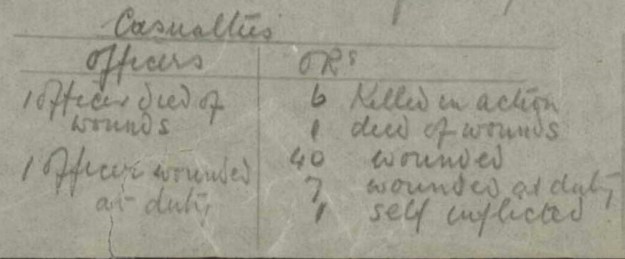 Casualties
Officers ORs
1 officer died of 6 killed in action
wounds 1 died of wounds
1 officer wounded 40 wounded
at duty 7 wounded at duty
1 self inflicted